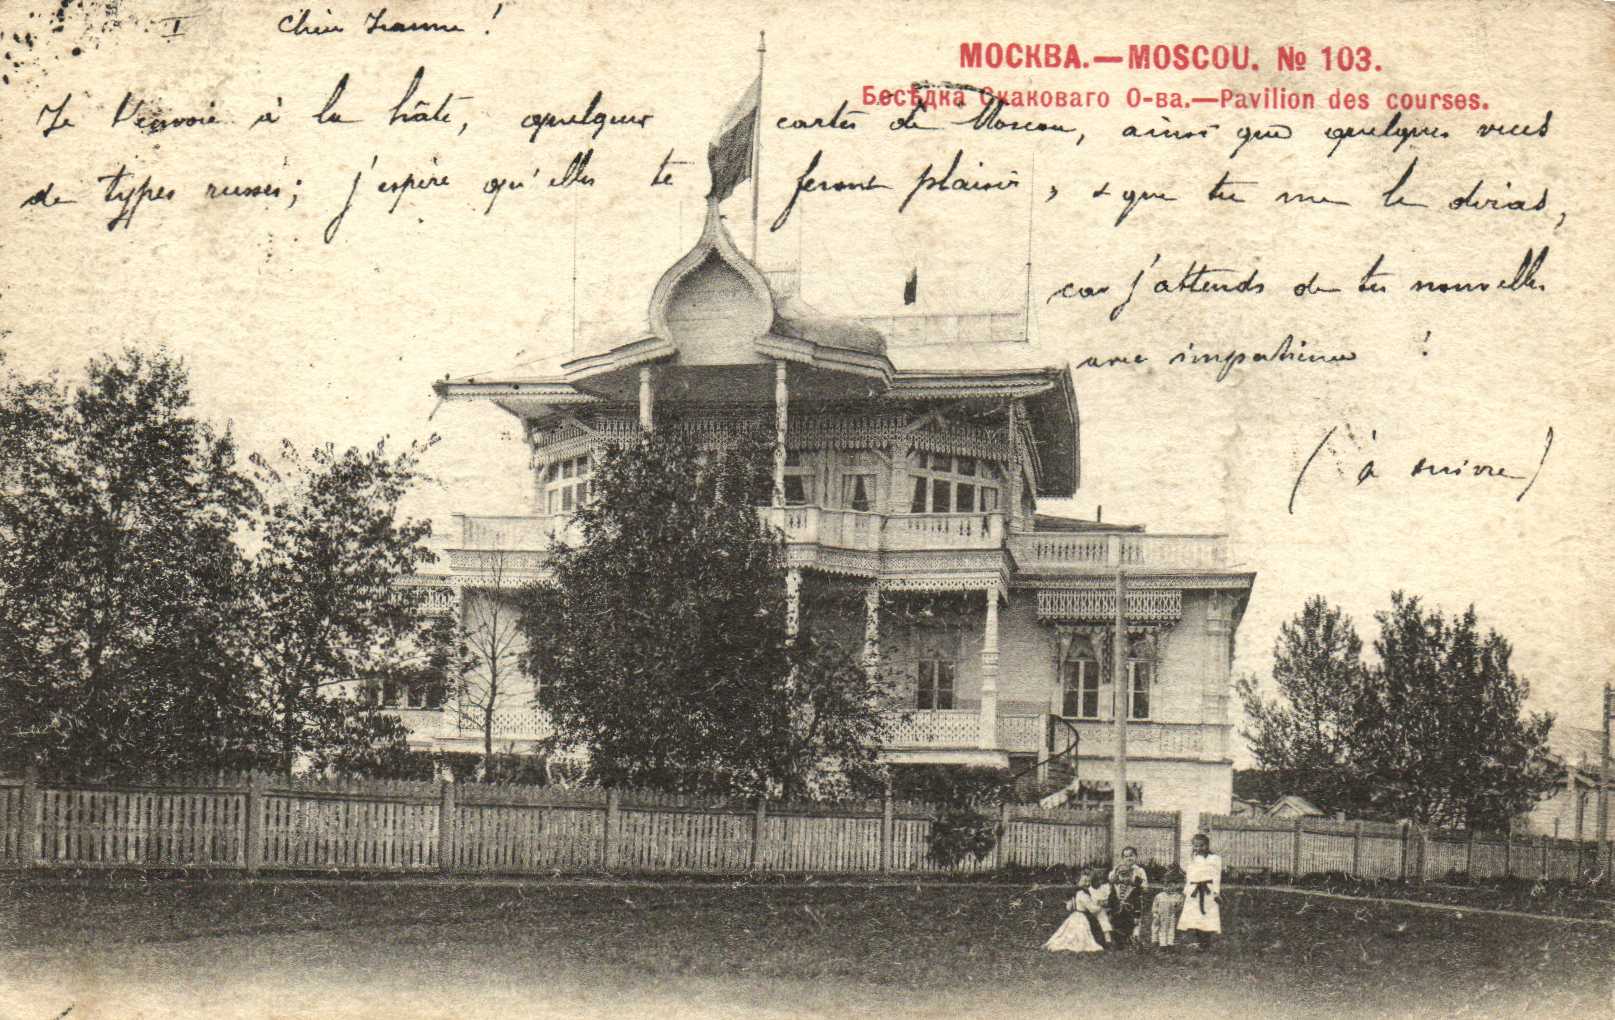 I
Chère Jeanne !
МОСКВА.—MOSCOU. № 103.
Бесѣдка Скаковаго О-ва.—Pavilion des courses.
Je t'envoie à la hâte, quelques cartes de Moscou, ainsi que quelques vues
de types russes; j'espère qu'elles te feront plaisir, & que tu me le diras,
car j'attends de tes nouvelles
avec impatience !
(à suivre)